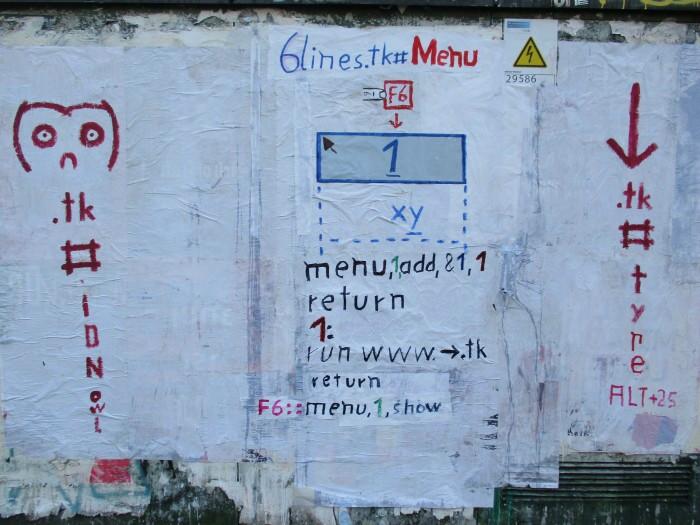 6lines.tk#Menu
29586
F6
1
xy
menu,1,add,&1,1
return
1:
run www.→.tk
return
F6::menu,1,show
.tk
#
I
D
N
owl
.tk
#
t
y
p
e
ALT+25